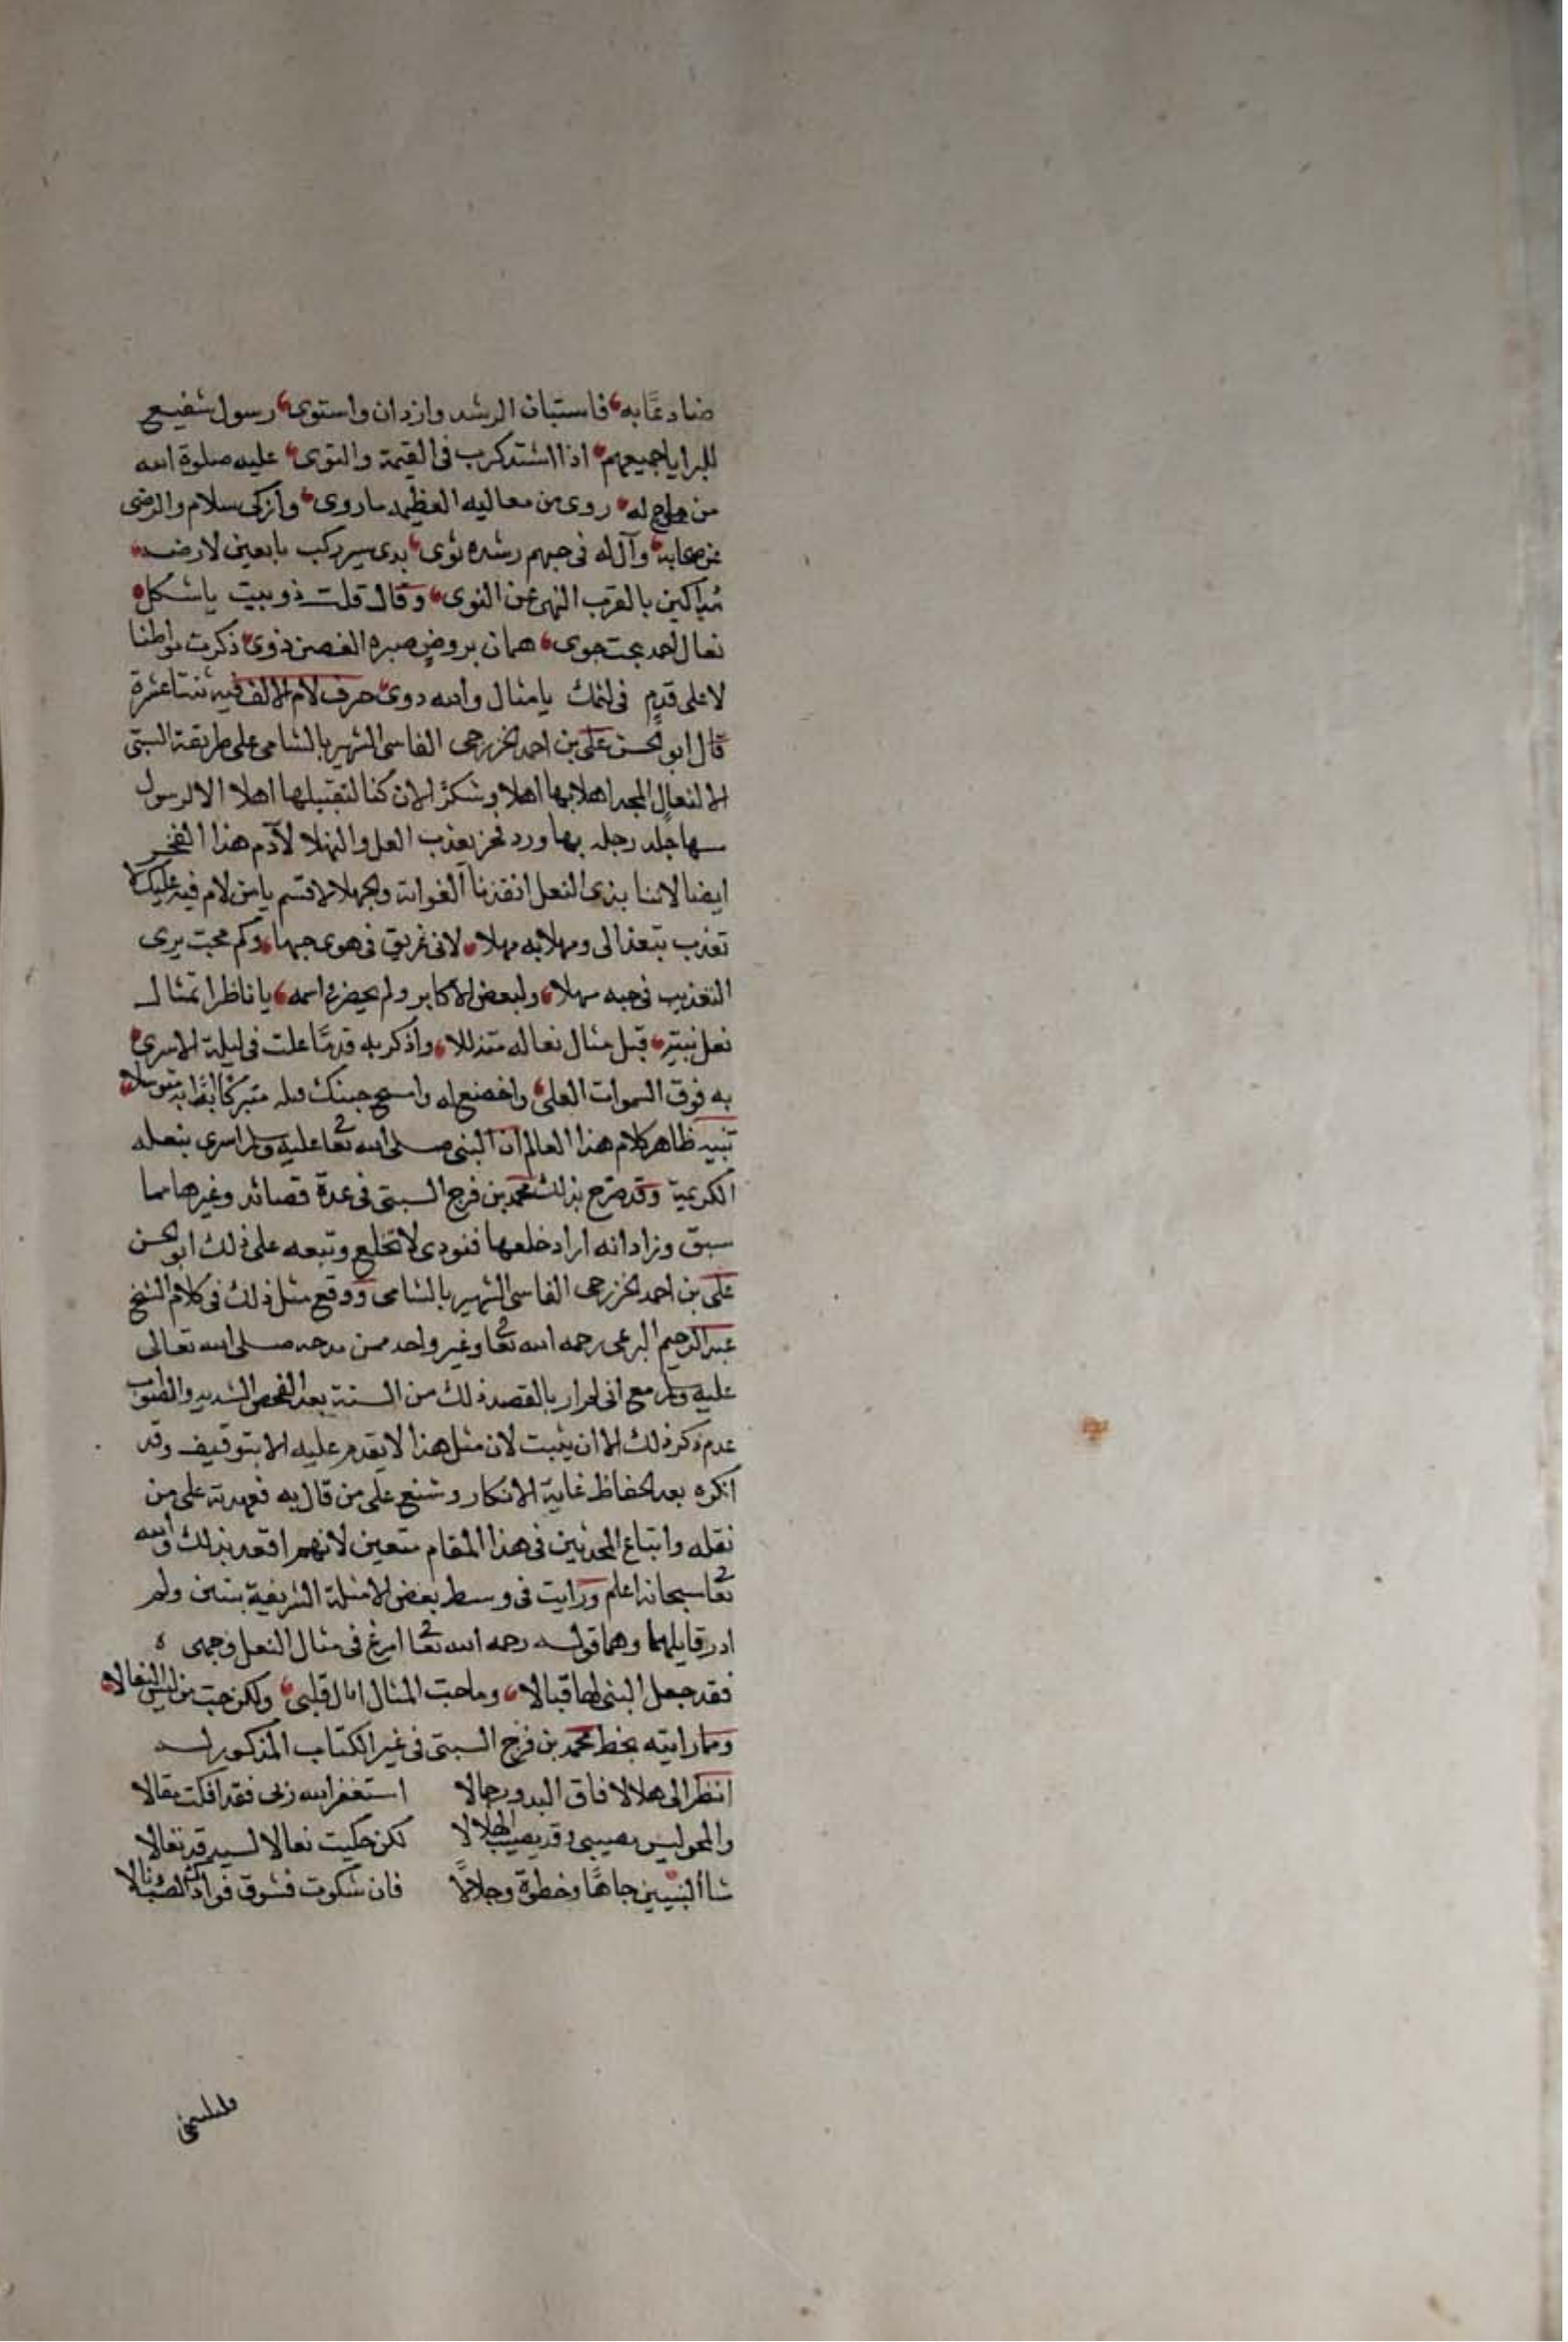 فاستبان الرشد وازدان واستوى رسول شفيع
للبرايا جميعهم اذا اشتد كرب فى القيمة والتوى عليه صلوة الله
من له روى من معاليه العظيمه ما روى وازكى سلام والرضى
عن صحابه وآل له فى حبهم رشده نوى
بالقرب النهى عن النوى وقال قلت ذو بيت ياشكل
نعال احمد همان بروض صبره الغصن ذوى ذكرت مواطنا
لاعلى قدم فى لثمك يامثال والله دوى حرف لام الالف فيه ثنتاعشرة
قال ابو الحسن على بن احمد الخزرجى الفاسى الشهير بالشامى على طريقة السبتى
الا لنعال المجد اهلا بها اهلا وشكرا لان كنا لتقبيلها اهلا الا لرسول
رجله بها ورد فخر بعذب العل والنهلا لآدم هذا الفخر
ايضا لاننا بذى النعل انقذنا الغواية والجهلا لا قسم يامن لام فيه عليك لا
تعذب بتعذالى ومهلا به مهلا لانى غريق فى هوى حبها وكم محب يرى
التعذيب فى حبه سهلا ولبعض الاكابر ولم يحضرنى اسمه يا ناظرا تمثال
نعل نبيه قبل مثال نعاله متذللا واذكر به قدما علت فى ليلة الاسرى
به فوق السموات العلى واخضع له وامسح جبينك متبركا به متوسلا
تنبيه ظاهر كلام هذا العالم ان النبى صلى الله تعا عليه وسلم اسرى بنعله
الكريمة وقد صرح بذلك محمد بن فرج السبتى فى عدة قصائد وغيرها مما
سبق وزاد انه اراد خلعها فنودى لا تخلع وتبعه على ذلك ابو الحسن
على بن احمد الخزرجى الفاسى الشهير بالشامى ووقع مثل ذلك فى كلام الشيخ
عبد الرحيم البرعى رحمه الله تعا وغير واحد ممن مدحه صلى الله تعالى
عليه وسلم مع انى لم ار بالقصد ذلك من السنة بعد الفحص الشديد والصواب
عدم ذكر ذلك الا ان يثبت لان مثل هذا لا يقدم عليه الا بتوقيف وقد
انكره بعد الحفاظ غاية الانكار وشنع على من قال به فعهدته على من
نقله واتباع المحدثين فى هذا المقام متعين لانهم اقعد بذلك والله
تعا سبحانه اعلم ورايت فى وسط بعض الامثلة الشريفة بيتين ولم
ادر قايلهما وهما قوله رحمه الله تعا امرغ فى مثال النعل وجهى
فقد جعل النبى لها قبالا وما حب المثال امال قلبى ولكن حب من لبس النعالا
ومما رايته بخط محمد بن فرج السبتى فى غير الكتاب المذكور له
انظر الى هلالا فاق البدور جمالا استغفر الله ربى فقد افكت مقالا
والمحو ليس يصيبى وقد يصيب الهلالا لكن حكيت نعالا لسيد قد تعالا
النبيين جاها وخطوة وجلالا فان شكوت فشوق